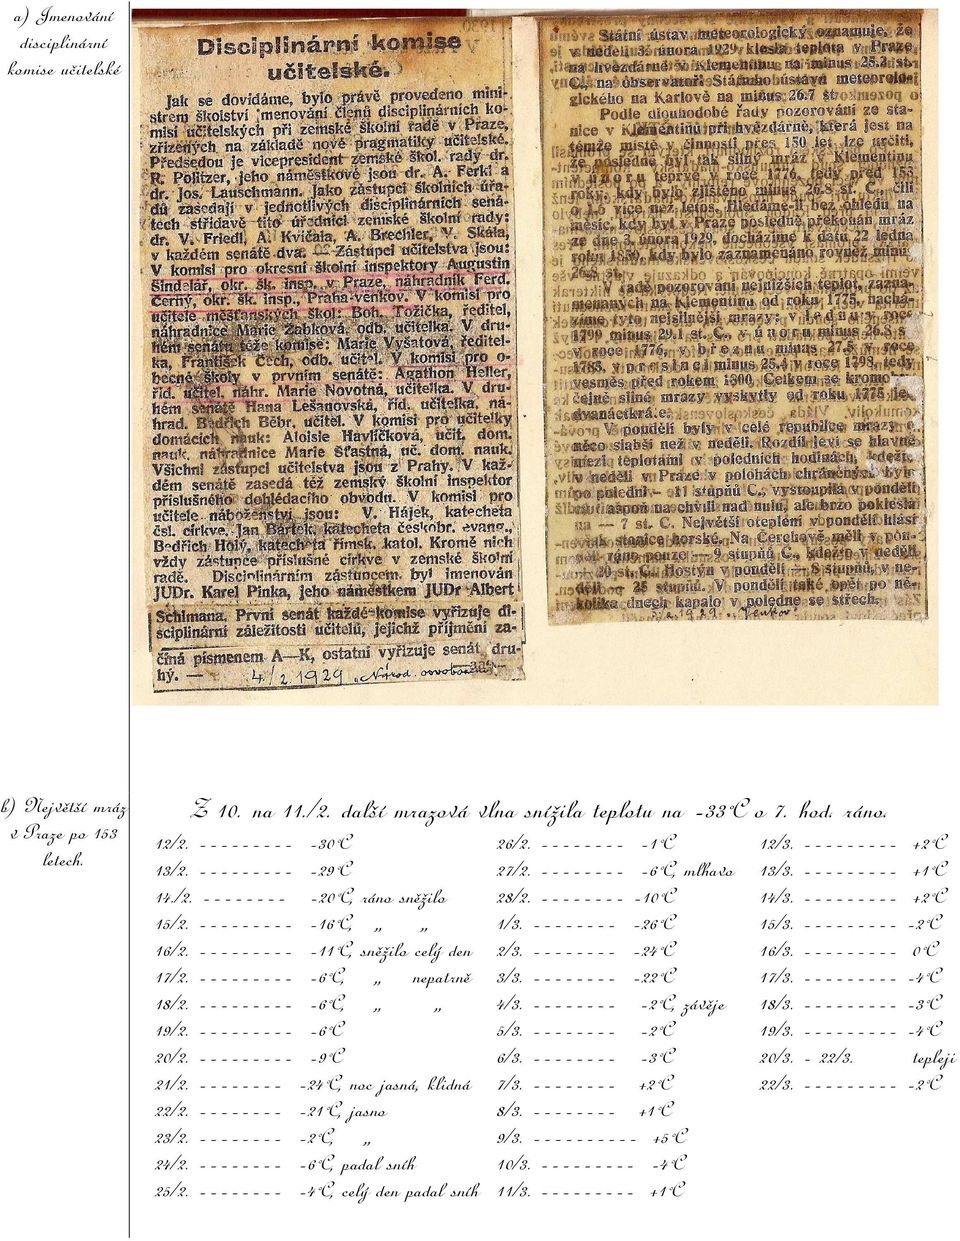 a) Jmenování
disciplinární
komise učitelské
Disciplinární komise
učitelské.
Jak se dovídáme, bylo právě provedeno mini-
strem školství jmenování členů disciplinárních ko-
misí učitelských při zemské školní radě v Praze,
zřízených na základě nové pragmatiky učitelské.
Předsedou je vicepresident zemské škol. rady dr.
R. Politzer, jeho náměstkové jsou dr. A. Ferkl a
dr. Jos. Lauschmann. Jako zástupci školních úřa-
dů zasedají v jednotlivých disciplinárních sená-
tech střídavě tito úředníci zemské školní rady:
dr. V. Friedl, A. Kvíčala, A. Brechler, V. Skála,
v každém senátě dva. — Zástupci učitelstva jsou:
V komisi pro okresní školní inspektory Augustin
Šindelář, okr. šk. insp. v Praze, náhradník Ferd.
Černý, okr. šk. insp., Praha-venkov. V komisi pro
učitele měšťanských škol: Boh. Tožička, ředitel,
náhradnice Marie Žabková odb. učitelka. V dru-
hém senátu téže komise: Marie Vyšatová, ředitel-
ka, František Čech, odb. učitel. V komisi pro o-
becné školy v prvním senátě: Agathon Heller,
říd. učitel, náhr. Marie Novotná, učitelka. V dru-
hém senátě Hana Lešanovská, říd. učitelka, ná-
hrad. Bedřich Běbr, učitel. V komisi pro učitelky
domácích nauk: Aloisie Havlíčková, učit. dom.
nauk, náhradnice Marie Šťastná, uč. dom. nauk.
Všichni zástupci učitelstva jsou z Prahy. V kaž-
dém senátě zasedá též zemský školní inspektor
příslušného dohlédacího obvodu. V komisi pro
učitele náboženství jsou: V. Hájek, katecheta
čsl. církve, Jan Bártek, katecheta českobr. evang.,
Bedřich Holý, katecheta římsk. katol. Kromě nich
vždy zástupce příslušné církve v zemské školní
radě. Disciplinárním zástupcem byl jmenován
JUDr. Karel Pinka, jeho náměstkem JUDr Albert
Schlmana. První senát každé komise vyřizuje di-
sciplinární záležitosti učitelů, jejichž příjmění za-
číná písmenem A—K, ostatní vyřizuje senát dru-
hý. —
4/2 1929 „Národ. osvobození"
Státní ústav meteorologický oznamuje, že
v neděli 3. února 1929 klesla teplota v Praze
na hvězdárně v Klementinu na minus 25.3 st.
C., na observatoři Státního ústavu meteorolo-
gického na Karlově na minus 26.7 st.
Podle dlouhodobé řady pozorování ze sta-
nice v Klementinu při hvězdárně, která jest na
témže místě v činnosti přes 150 let, lze určiti,
že posledně byl tak silný mráz v Klementinu
v únoru teprve v roce 1776, tedy před 153
roky, kdy bylo zjištěno minus 26.8 st. C., čili
o 1.5 více než letos. Hledáme-li bez ohledu na
měsíc, kdy byl v Praze posledně překonán mráz
ze dne 3. února 1929, docházíme k datu 22 ledna
roku 1850, kdy bylo zaznamenáno rovněž minus
26.3 st.
V řadě pozorování nejnižších teplot, zazna-
menaných na Klementinu od roku 1775, nachá-
zíme tyto nejsilnější mrazy: v lednu r. roce
1799 minus 29.1 st. C., v únoru minus 26.8 s
v roce 1776, v březnu minus 27.5 v roce
1785, v prosinci minus 25.4 v roce 1798, tedy
vesměs před rokem 1800. Celkem se kromo-
čejně silné mrazy vyskytly od roku 1775 je
dvanáctkrá.e.
V pondělí byly v celé republice mrazy o
něco slabší než v neděli. Rozdíl jeví se hlavně
mezi teplotami v poledních hodinách, kdežt.
v neděli v Praze v polohách chráněných byl.
po poledni — 11 stupňů C., vystoupila v pondělí
aspoň na chvíli nad nulu, ale brzo poklesla
na — 7 st. C. Největší oteplení v pondělí hlásí
stanice horské. Na Čerchově měli v pon-
dělí ráno pouze — 9 stupňů C., kdežto v neděli
— 20 st. C. Hostýn v pondělí — 8 stupňů, v ne-
děli — 25 stupňů. V pondělí také opět po ně-
kolika dnech kapalo v poledne se střech.
5/2 1929 „Venkov"
b) Největší mráz
v Praze po 153
letech.
Z 10. na 11./2. další mrazová vlna snížila teplotu na -33°C o 7. hod. ráno.
12/2. --------- -30°C
13/2. --------- -29°C
14./2. -------- -20°C, ráno sněžilo
15/2. --------- -16°C, „ „
16/2. --------- -11°C, sněžilo celý den
17/2. --------- -6°C, „ nepatrně
18/2. --------- -6°C, „ „
19/2. --------- -6°C
20/2. --------- -9°C
21/2. -------- -24°C, noc jasná, klidná
22/2. -------- -21°C, jasno
23/2. -------- -2°C, „
24/2. -------- -6°C, padal sníh
25/2. -------- -4°C, celý den padal sníh
26/2. -------- -1°C
27/2. -------- -6°C, mlhavo
28/2. -------- -10°C
1/3. -------- -26°C
2/3. -------- -24°C
3/3. -------- -22°C
4/3. -------- -2°C, závěje
5/3. -------- -2°C
6/3. -------- -3°C
7/3. -------- +2°C
8/3. -------- +1°C
9/3. ---------- +5°C
10/3. --------- -4°C
11/3. --------- +1°C
12/3. --------- +2°C
13/3. --------- +1°C
14/3. --------- +2°C
15/3. --------- -2°C
16/3. --------- 0°C
17/3. --------- -4°C
18/3. --------- -3°C
19/3. --------- -4°C
20/3. - 22/3. tepleji
22/3. --------- -2°C